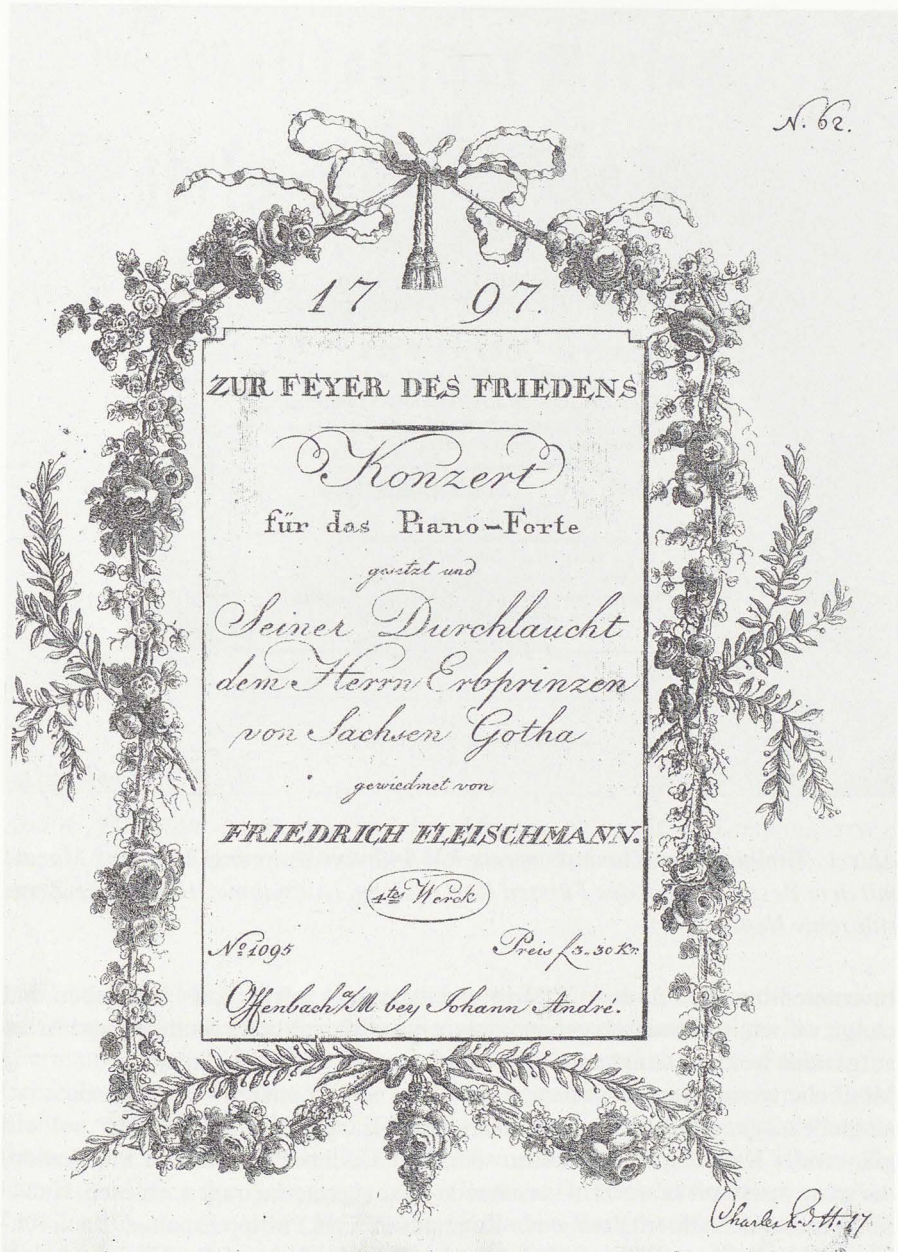 N. 62.
17 97.
ZUR FEYER DES FRIEDENS
Konzert
für das Piano-Forte
gesetzt und
Seiner Durchlaucht
dem Herrn Erbprinzen
von Sachsen Gotha
gewiedmet von
FRIEDRICH FLEISCHMANN.
4tes Werck
No 1095 Preis f 3. 30 Kr.
Offenbach a/M bey Johann André.
Charles